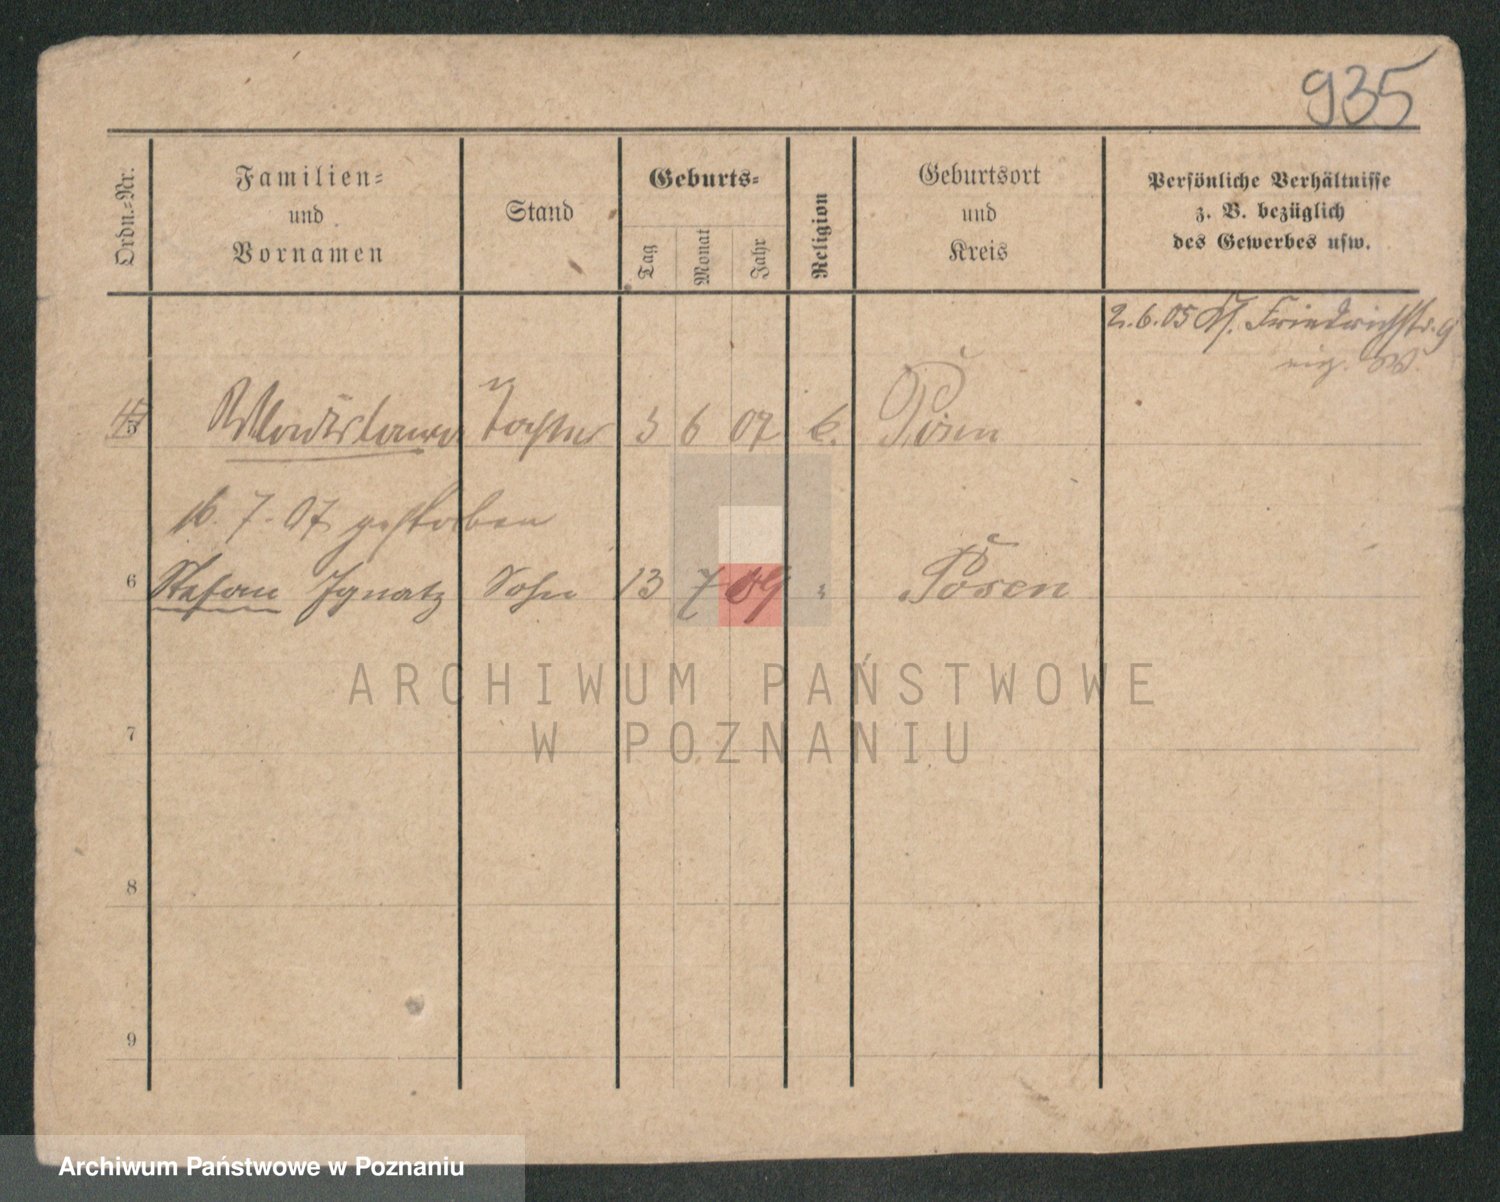 935
Ordn.-Nr.
Familien-
und
Vornamen
Stand
Geburts-
Tag
Monat
Jahr
Religion
Geburtsort
und
Kreis
Persönliche Verhältnisse
z. B. bezüglich
des Gewerbes usw.
2. 6. 05 Friedrichstr. 9
eig. W.
5 Wladislawa Tochter 3 6 07 k. Posen
16. 7. 07 gestorben
6 Stefan Ignatz Sohn 13 7 09 " Posen
ARCHIWUM PAŃSTWOWE
W POZNANIU
7
8
9
Archiwum Państwowe w Poznaniu